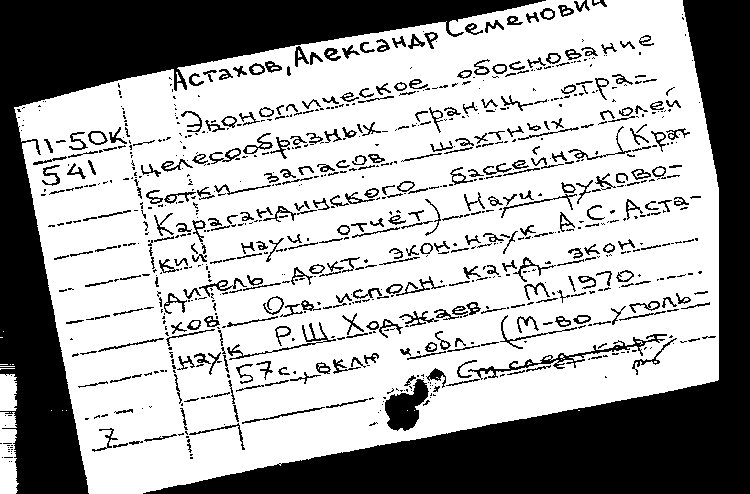 Астахов, Александр Семенович
71-50к
541
Экономическое обоснование
целесообразных границ отра-
ботки запасов шахтных полей
Карагандинского бассейна. (Крат
кий науч. отчёт) Науч. руково-
дитель докт. экон. наук А.С. Аста-
хов. Отв. исполн. канд. экон.
наук Р.Ш. Ходжаев. М., 1970.
57с., включ. обл. (М-во уголь-
См. след. карт.
7